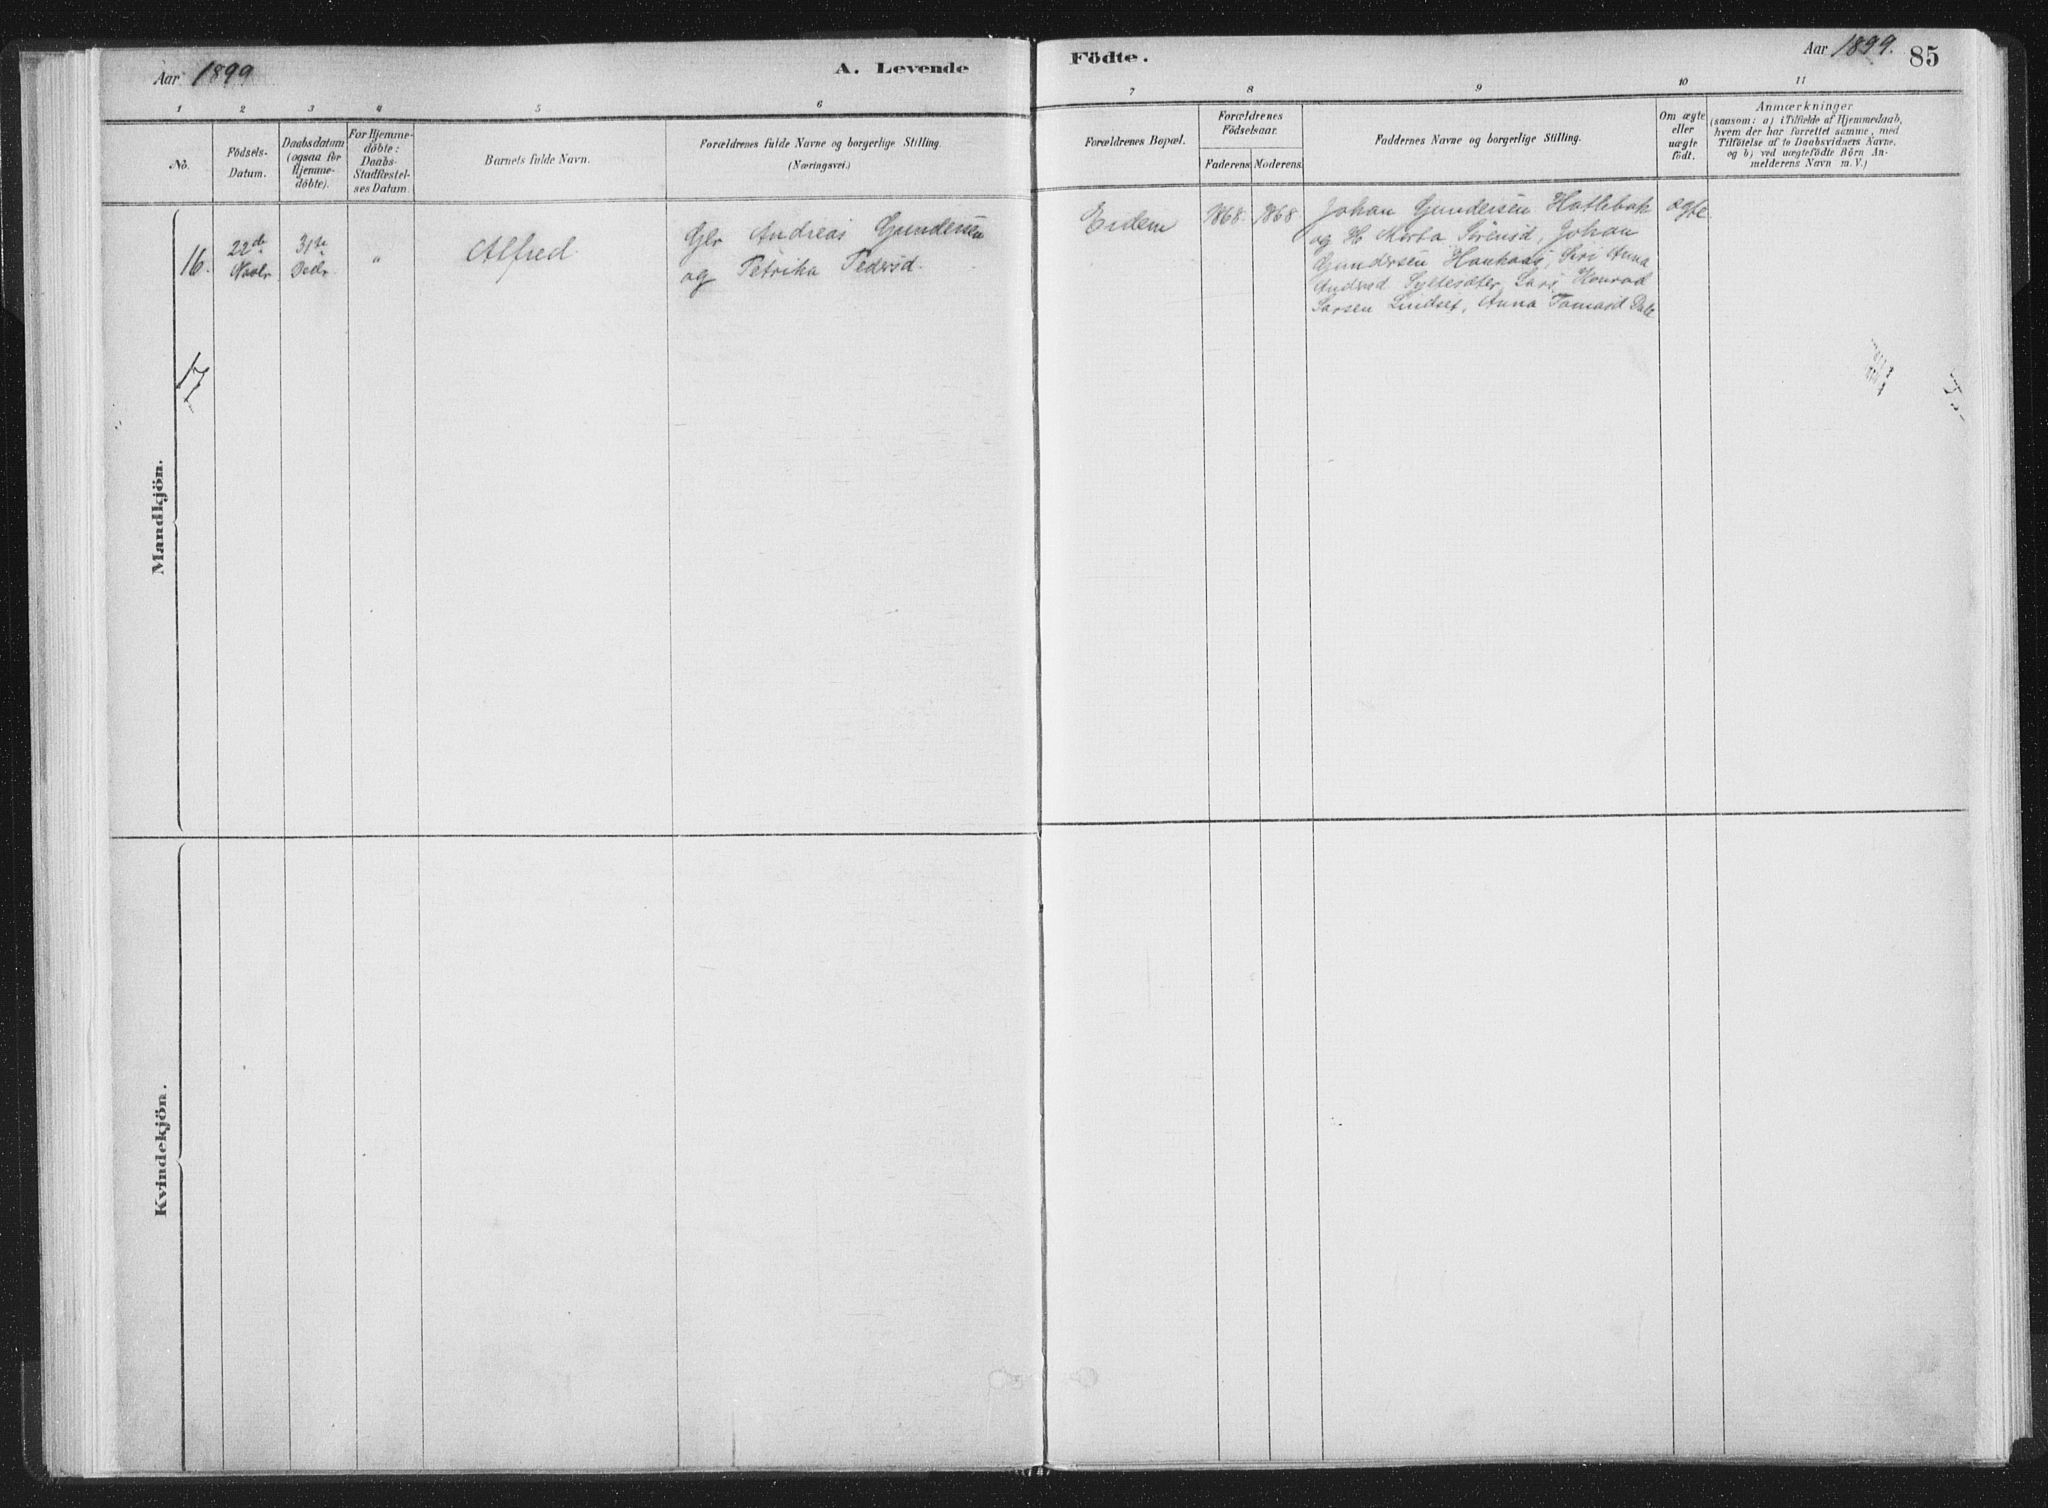 Aar 1899
A. Levende
Födte.
Aar 1899.
85
1 2 3 4 5 6 7 8 9 10 11
No.
Födsels-
Datum.
Daabsdatum
(ogsaa for
Hjemme-
döbte).
For Hjemme-
döbte:
Daabs-
Stadfæstel-
ses Datum.
Barnets fulde Navn.
Forældrenes fulde Navne og borgerlige Stilling.
(Næringsvei.)
Forældrenes Bopæl.
Forældrenes
Födselsaar.
Faderens. Moderens.
Faddernes Navne og borgerlige Stilling.
Om ægte
eller
uægte
födt.
Anmærkninger
(saasom: a) i Tilfælde af Hjemmedaab,
hvem der har forrettet samme, med
Tilföielse af to Daabsvidners Navne,
og b) ved uægtefödte Börn An-
melderens Navn m. V.)
Mandkjön.
16.
22de
Novbr.
31te
Decbr.
"
Alfred
Gbr Andreas Gundersen
og Petrika Pedersd.
Eidem
1868. 1868
Johan Gundersen Hatlebak
og H. Marta Sörensd, Johan
Gundersen Haukaas, Siri Anna
Andersd Syltesæter, Lars Konrad
Larsen Lindset, Anna Tomasd Dale
ægte
17
Kvindekjön.